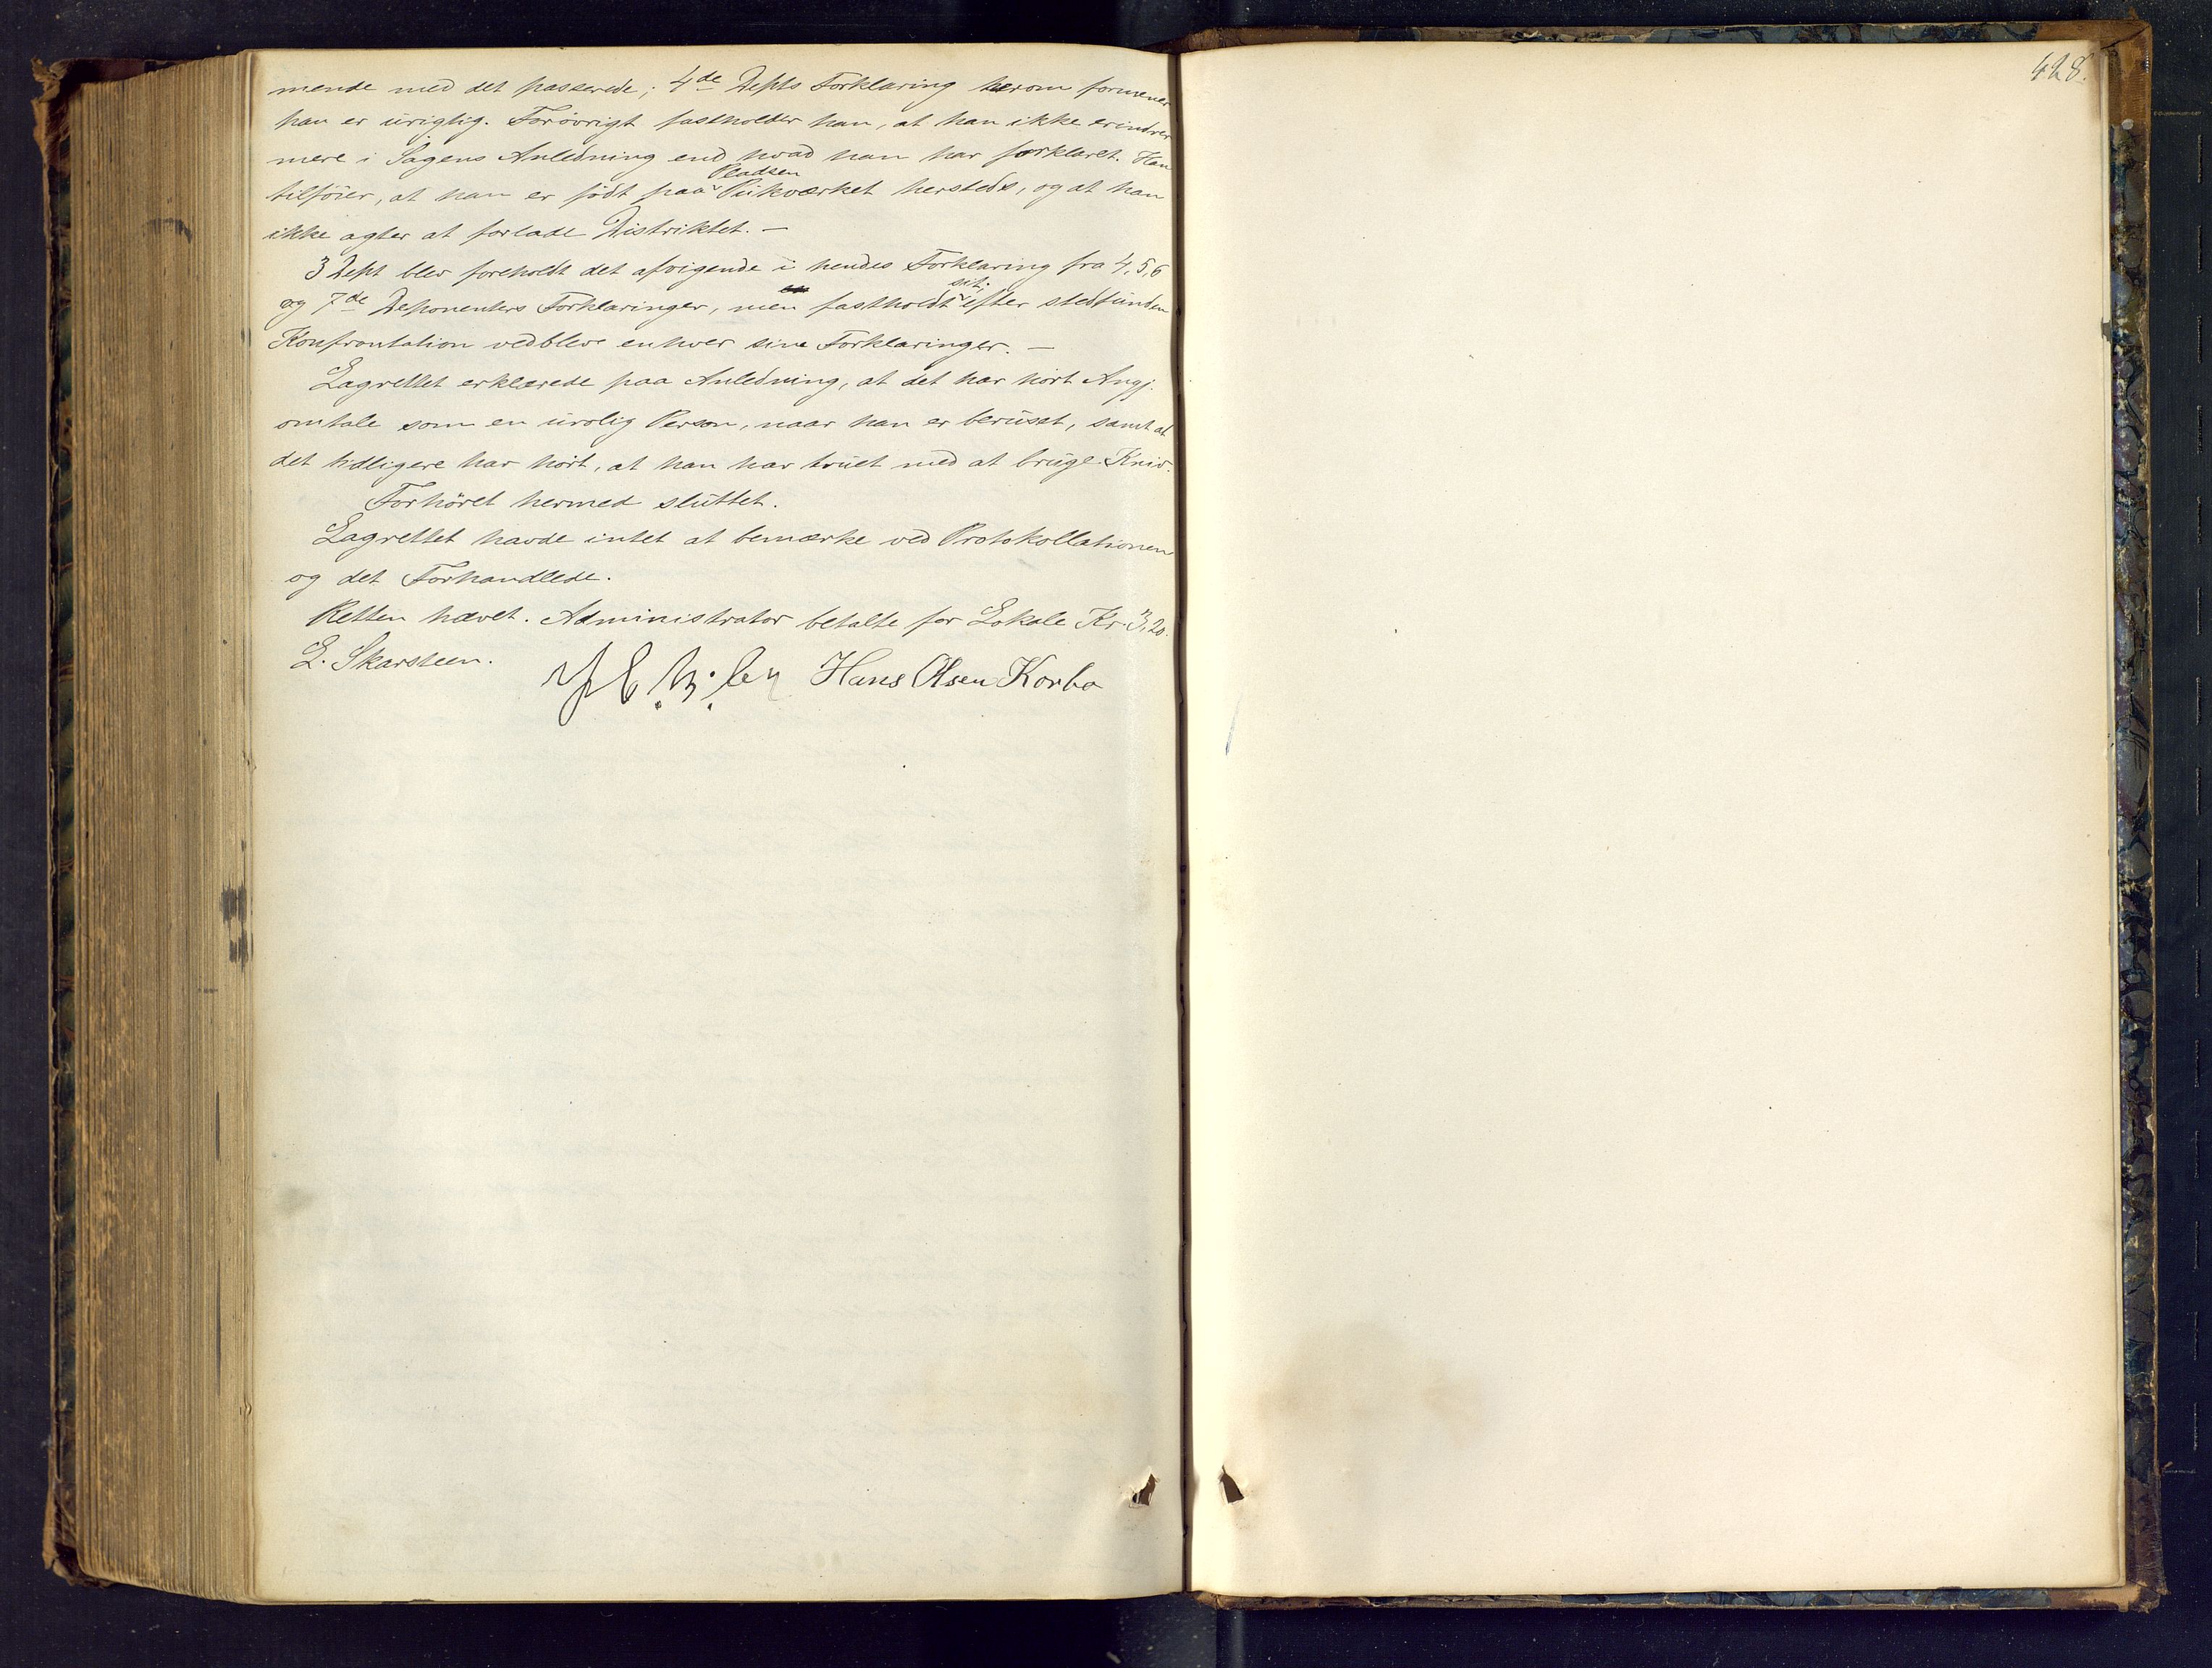 mende med det passerede; 4de Depts Forklaring herom formener
han er urigtig. Forøvrigt fastholder han, at han ikke erindrer
mere i Sagens Anledning end hvad han har forklaret. Han
Pladsen
tilföier, at han er födt paa Pukværket hersteds, og at han
ikke agter at forlade Distriktet. –
3 Dept blev foreholdt det afvigende i hendes Forklaring fra 4, 5, 6
og 7de Deponenters Forklaringer, men fastholdt efter stedfunden
Konfrontation vedblev enhver sine Forklaringer. –
Lagrettet erklærede paa Anledning, at det har hört Angj.
omtale som en urolig Person, naar han er beruset, samt at
det tidligere har hört, at han har truet med at bruge Kniv.
Forhöret hermed sluttet.
Lagrettet havde intet at bemærke ved Protokollationen
og det Forhandlede.
Retten hævet. Administrator betalte for Lokale Kr. 3,20.
E. Skarsteen. Hans Olsen Korbo
428.